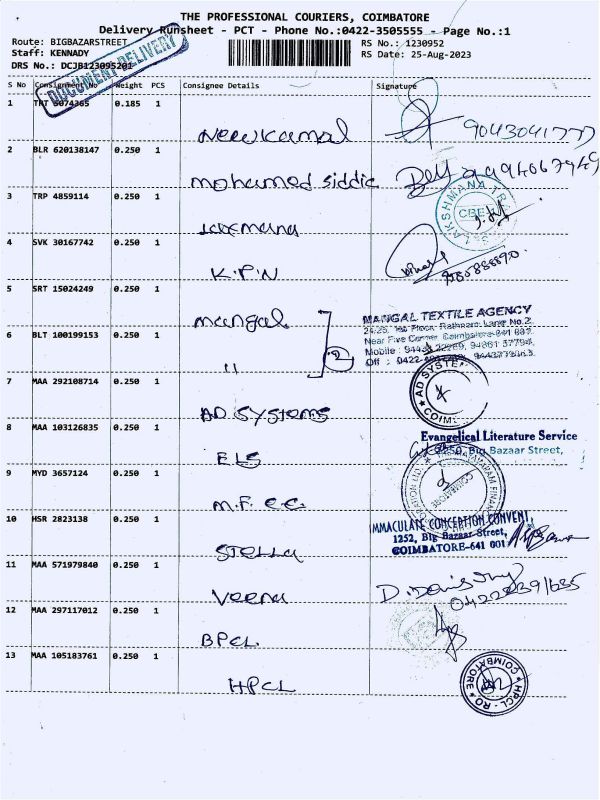 THE PROFESSIONAL COURIERS, COIMBATORE
Delivery Runsheet - PCT - Phone No.:0422-3505555 - Page No.:1
Route: BIGBAZARSTREET
Staff: KENNADY
DRS No.: DCJB123095201
RS No.: 1230952
RS Date: 25-Aug-2023
DOCUMENT DELIVERY
S No Consignment No Weight PCS Consignee Details Signature
1 TRT 5074365 0.185 1 New kamal 9043041777
2 BLR 620138147 0.250 1 mohamed siddic
3 TRP 4859114 0.250 1 Laxmana
LAKSHMANA
CBE-1
4 SVK 30167742 0.250 1 K.P.N
5 SRT 15024249 0.250 1 mangal
MANGAL TEXTILE AGENCY
Near Five Corner Coimbatore-641 001
Mobile :
Off : 0422
6 BLT 100199153 0.250 1 11 2
7 MAA 292108714 0.250 1 AD SYSTEMS
AD SYSTEM
COIM
8 MAA 103126835 0.250 1 ELS
Evangelical Literature Service
Big Bazaar Street,
9 MYD 3657124 0.250 1 M.F.C.C
COIMBATORE
10 HSR 2823138 0.250 1 STELLA
IMMACULATE CONCEPTION CONVENT,
1252, Big Bazaar Street,
COIMBATORE-641 001
11 MAA 571979840 0.250 1 Veena
12 MAA 297117012 0.250 1 BPCL
13 MAA 105183761 0.250 1 HPCL
COIMBATORE
HPCL - RO